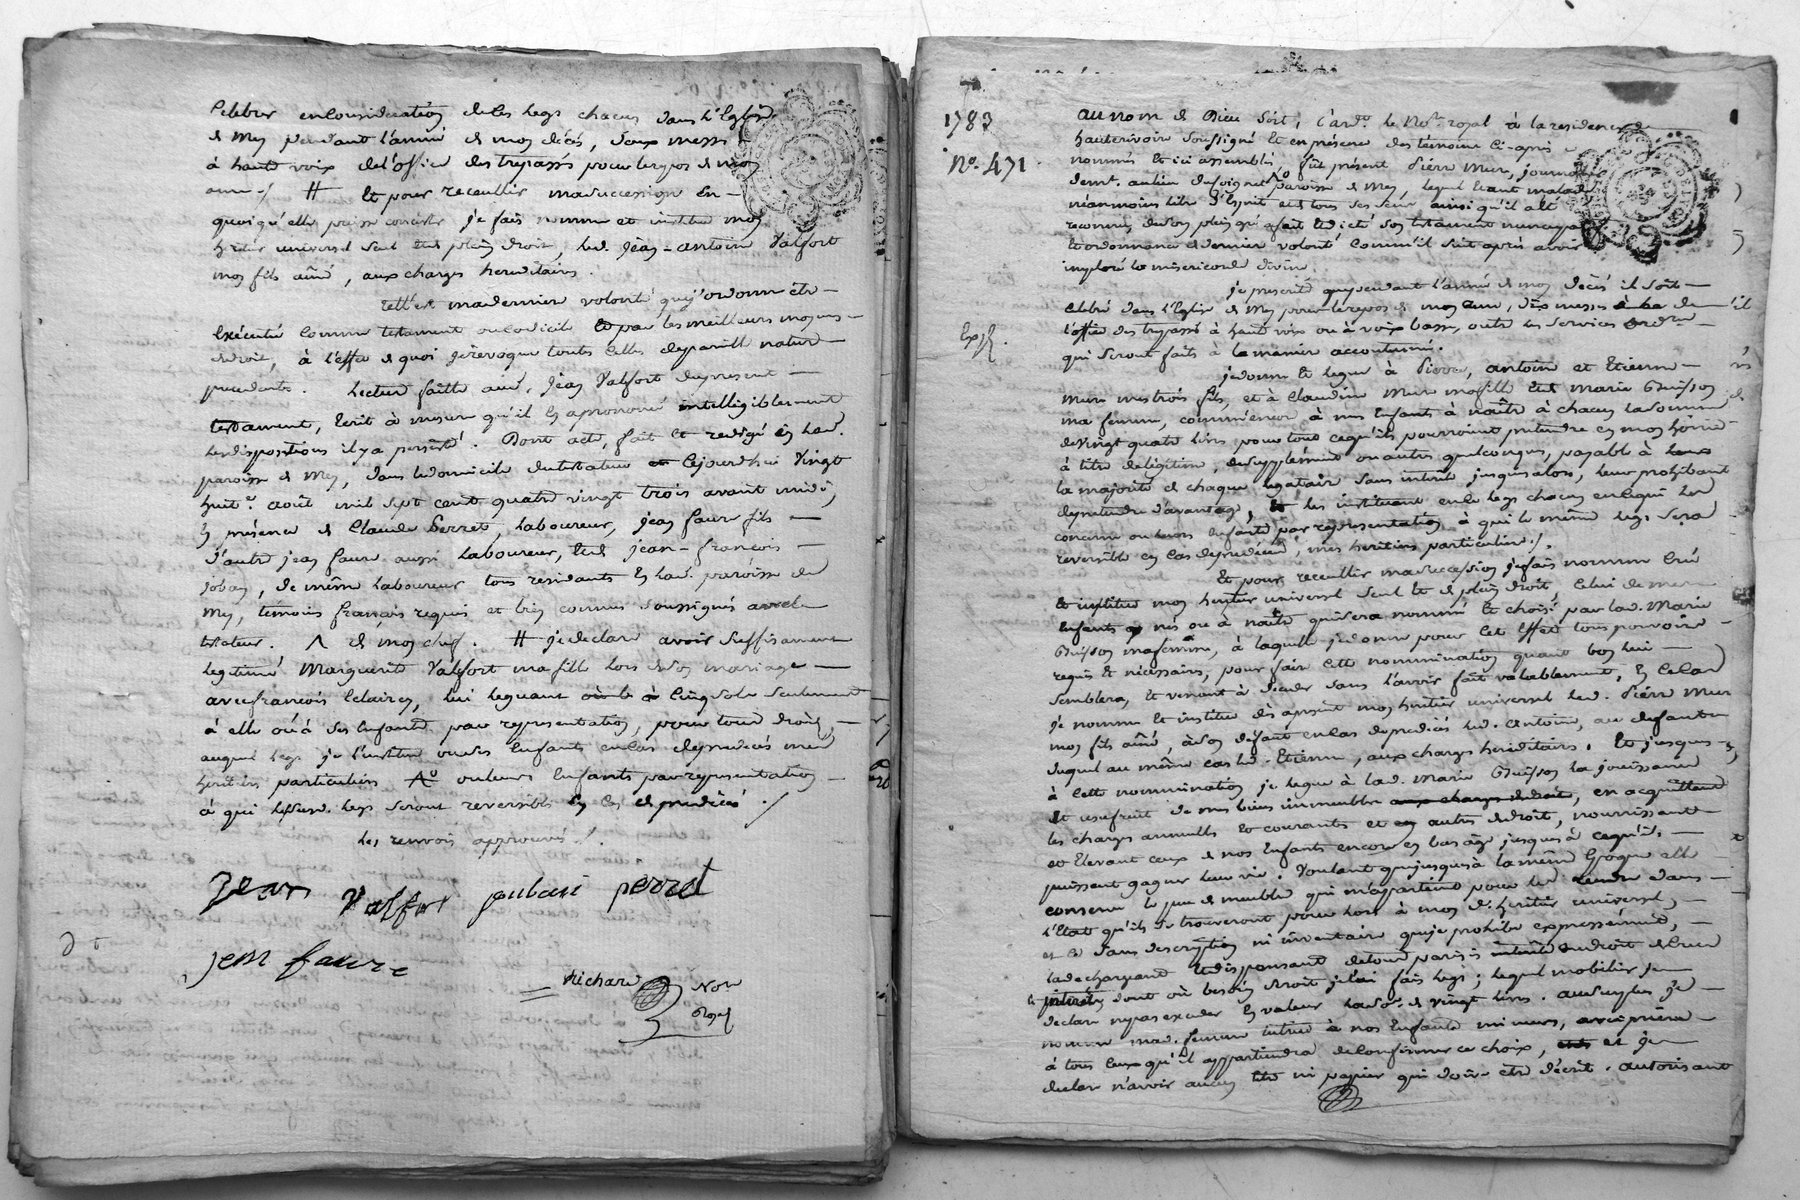 Celebrer en consideration de ces legs chacun dans l'Eglise
de Mey pendant l'année de mon décès, deux messes
à haute voix de l'office des trepassés pour le repos de mon
ame ./ # Et pour receuillir ma succession en
quoi qu'elle puisse consister je fais nomme et institue mon
heritier universel seul et de plein droit, led. Jean-antoine Valfort
mon fils ainé, aux charges hereditaires.
telle est ma derniere volonté que j'ordonne etre
Exécutée comme testament ou codicile et par les meilleurs moyens
de droit, à l'effet de quoi je revoque toutes celles de pareille nature
precedentes. Lecture faitte aud. Jean Valfort du present
testament, Ecrit à mesure qu'il l'a prononcé intelligiblement
les dispositions il y a persisté. Dont acte, fait et redigé en lad.
paroisse de Mey, dans le domicile du testateur cejourd'hui Vingt
huit.e août mil sept cent quatre vingt trois avant midi,
En présence de Claude Perret, Laboureur, jean faure fils
d'autre jean faure aussi Laboureur, et de jean-françois
Joban, de même Laboureur tous residants En lad. paroisse de
Mey, témoins français requis et bien connus soussignés avec le
testateur. Λ de mon chef. # je declare avoir suffisament
legitimé Marguerite Valfort ma fille lors de son mariage
avec françois lui leguant cinq sols seulement
à elle où à ses Enfants par representation, pour tous droits,
auquel legs je l'institue ou ses Enfants en cas de predecés mes
héritiers particuliers ou leurs Enfants par representation
à qui lesd. legs seront reversibles En cas de predécès ./
Les renvois approuvés ./.
Jean Valfort joban perret
jean faure
Richard Not.
Royal
1783
N.o 471
Exp.
au nom de Dieu soit, Pard.t le No.re royal à la residence de
hauterivoire soussigné Et en présence des témoins Ci-après
nommés Et ici assemblés fut présent Piérre Mure, journalier
demt. au lieu du paroisse de Mey, lequel Etant malade
néanmoins libre d'Esprit et de tous ses sens ainsi qu'il a été
reconnu, de son plein gré a fait Et dicté son testament nuncupatif
Et ordonnance de derniere volonté Comme il suit après avoir
imploré la misericorde divine.
je prescrits que pendant l'année de mon décès il soit
célébré dans l'Eglise de Mey pour le repos de mon ame, dix messes de
l'office des trepassés à haute voix ou à voix basse, outre les services
qui seront faits à la maniere accoutumée.
je donne Et legue à Pierre, antoine et Etienne
Mure mes trois fils, et à Claudine Mure ma fille Et de Marie Buisson
ma femme, comme encore à mes Enfants à naître à chacun la somme
de vingt quatre livres pour tout ce qu'ils pourroient pretendre en mon hoirie
à titre de légitime, de supplément ou autres quelconques, payable à
la majorité de chaque legataire sans intérêt jusques alors, leur prohibant
de pretendre d'avantage, les instituant en ce legs chacun en ce qui les
concerne ou leurs Enfants par representation à qui le même legs sera
reversible en cas de predécès, mes heritiers particuliers ./.
Et pour receuillir ma succession je fais nomme Crée
Et institue mon heritier universel seul Et de plein droit, Celui de mes
Enfants nés ou à naître qui sera nommé Et choisi par lad. Marie
Buisson ma femme, à laquelle je donne pour cet effet tous pouvoirs
requis Et nécessaires, pour faire cette nommination quand bon lui
semblera, Et venant à déceder sans l'avoir fait valablement, En ce cas
je nomme Et institue dès à présent mon heritier universel led. Piérre Mure
mon fils ainé, à son défaut en cas de predecés led. Antoine, au defaut
duquel au même cas led. Etienne, aux charges hereditaires. Et jusques
à cette nommination je legue à lad. Marie Buisson la jouissance
Et usufruit de mes biens immeubles aux charges de droit, en acquittant
les charges annuelles Et courantes et autres de droit, nourrissant
et Elevant ceux de nos Enfants encore en bas âge jusques à ce qu'ils
puissent gagner leur vie. Voulant que jusques à la même Epoque elle
conserve le peu de meubles qui m'appartient pour les rendre dans
l'Etat qu'ils se trouveront pour lors à mon d. heritier universel,
et ce sans description ni inventaire que je prohibe expressément,
la dechargeant Et dispensant
dont où besoin seroit je lui fais legs; lequel mobilier je
declare ne pas exceder En valeur la so.e de vingt livres. au surplus je
nomme mad. femme tutrice à nos Enfants mineurs, avec priere
à tous ceux qu'il appartiendra de Confirmer ce choix, et je
declare n'avoir aucun titre ni papier qui doive etre décrit. autorisant